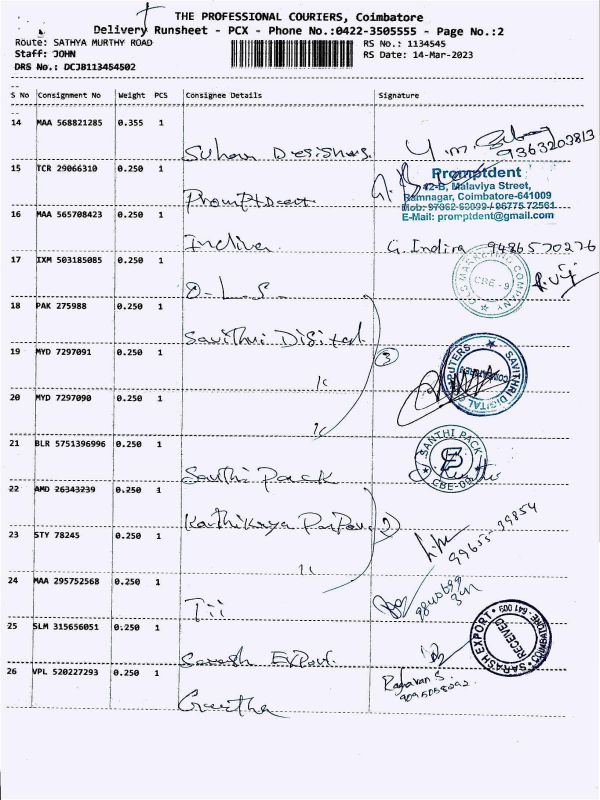 THE PROFESSIONAL COURIERS, Coimbatore
Delivery Runsheet - PCX - Phone No.:0422-3505555 - Page No.:2
Route: SATHYA MURTHY ROAD
RS No.: 1134545
Staff: JOHN
RS Date: 14-Mar-2023
DRS No.: DCJB113454502
S No Consignment No Weight PCS Consignee Details Signature
14 MAA 568821285 0.355 1
9363203813
15 TCR 29066310 0.250 1
Promptdent
42-B, Malaviya Street,
Ramnagar, Coimbatore-641009
Mob: 97062 63099 / 96775 72561
E-Mail: promptdent@gmail.com
16 MAA 565708423 0.250 1
G. Indira 9486570276
17 IXM 503185085 0.250 1
O-L.S.
MARKETING COMPANY
CBE - 9
18 PAK 275988 0.250 1
Savithri Digital
19 MYD 7297091 0.250 1
3
SAVITHRI DIGITAL COMPUTERS
20 MYD 7297090 0.250 1
21 BLR 5751396996 0.250 1
Santhi Pack
SANTHI PACK
CBE-09
22 AMD 26343239 0.250 1
23 STY 78245 0.250 1
99655-39854
24 MAA 295752568 0.250 1
Tii
25 SLM 315656051 0.250 1
Sarash Export.
SARASH EXPORT
RECEIVED
COIMBATORE - 641 009
26 VPL 520227293 0.250 1
Geetha
Ragavan S.
9095058292